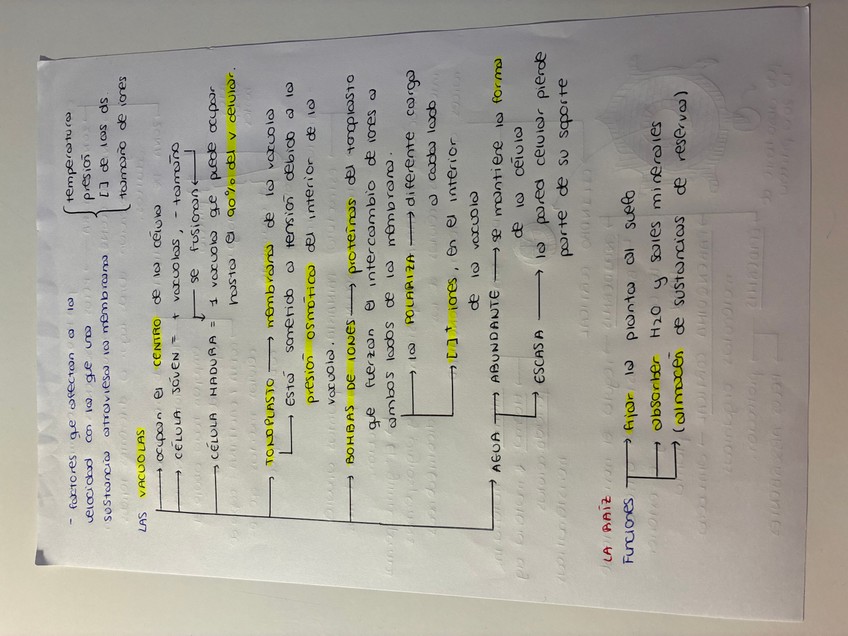 - factores que afectan a la
velocidad con la que una
sustancia atraviesa la membrana
temperatura
presión
[] de las ds
tamaño de iones
LAS VACUOLAS
→ ocupan el CENTRO de la célula
→ CÉLULA JOVEN = + vacuolas, - tamaño
→ se fusionan ←
→ CÉLULA MADURA = 1 vacuola que puede ocupar
hasta el 90% del v celular.
→ TONOPLASTO → membrana de la vacuola
→ Está sometido a tensión debido a la
presión osmótica del interior de la
vacuola.
→ BOMBAS DE IONES → proteínas del tonoplasto
que fuerzan el intercambio de iones a
ambos lados de la membrana.
→ la POLARIZA → diferente carga
a cada lado
→ []+ iones, en el interior
de la vacuola
AGUA → ABUNDANTE → se mantiene la forma
de la célula
→ ESCASA → la pared celular pierde
parte de su soporte
LA RAÍZ
Funciones → fijar la planta al suelo
→ absorber H2O y sales minerales
→ (almacén de sustancias de reserva)